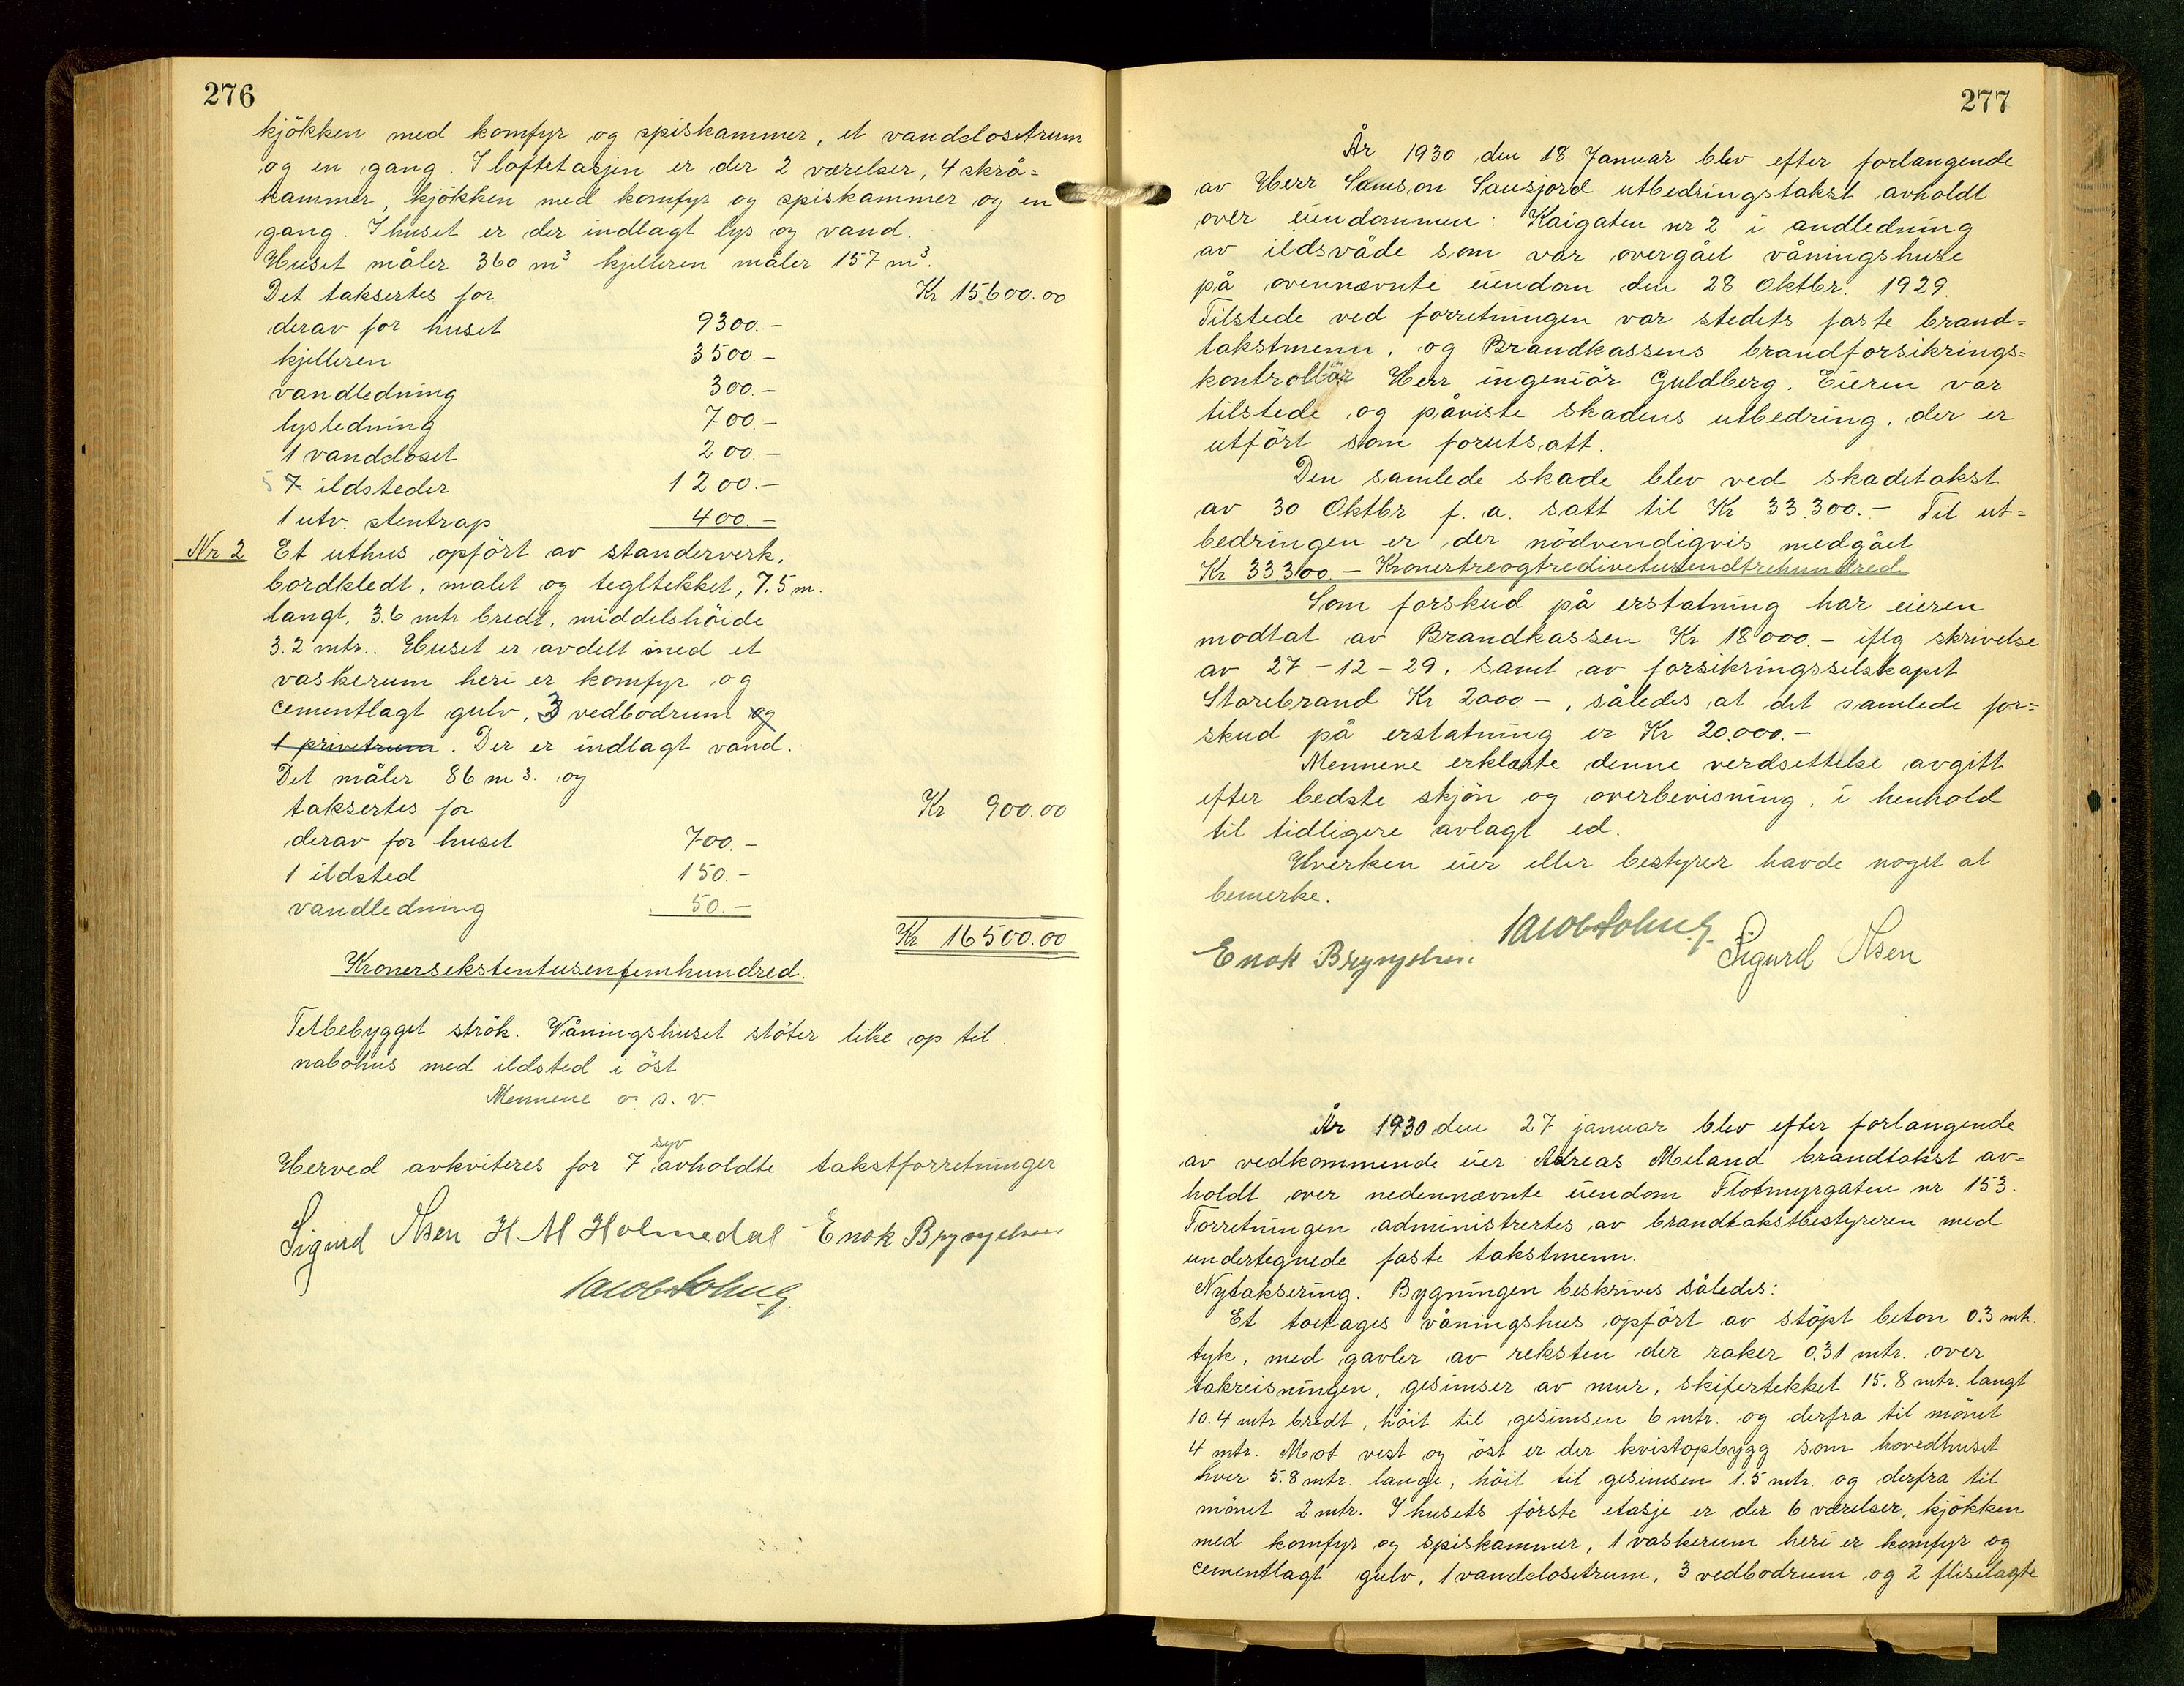 276
kjökken med komfyr og spiskammer, et vandclosetrum
og en gang. I loftetasjen er der 2 værelser, 4 skrå=
kammer, kjökken med komfyr og spiskammer og en
gang. I huset er der indlagt lys og vand.
Huset måler 360 m³ kjelleren måler 157 m³.
Det taksertes for Kr 15.600.00
derav for huset 9300.-
kjelleren 3500.-
vandledning 300.-
lysledning 700.-
1 vandcloset 200.-
5 7 ildsteder 1200.-
1 utv. stentrap 400.-
Nr 2 Et uthus opfört av standerverk,
bordkledt, malet og tegltekket, 7.5 m.
langt, 3.6 mtr bredt, middelshöide
3.2 mtr.. Huset er avdelt med et
vaskerum heri er komfyr og
cementlagt gulv, 3 vedbodrum og
1 privetrum. Der er indlagt vand.
Det måler 86 m3. og
taksertes for Kr 900.00
derav for huset 700.-
1 ildsted 150.-
vandledning 50.-
Kr 16500.00
Kronersekstentusenfemhundred.
Tetbebygget strök. Våningshuset stöter like op til
nabohus med ildsted i öst
Mennene o. s. v.
Herved avkviteres for 7 syv avholdte takstforretninger
Sigurd Olsen H M Holmedal Enok Brynjelsen
277
År 1930 den 18 Januar blev efter forlangende
av Herr Samson Sausjord utbedringstakst avholdt
over eiendommen: Kaigaten nr 2 i andledning
av ildsvåde som var overgået våningshuse
på ovennævnte eiendom den 28 Oktbr. 1929.
Tilstede ved forretningen var stedets faste brand=
takstmenn, og Brandkassens brandforsikrings=
kontrollör Herr ingeniör Guldberg. Eieren var
tilstede og påviste skadens utbedring, der er
utfört som forutsatt.
Den samlede skade blev ved skadetakst
av 30 Oktbr f. a. satt til Kr 33.300.- Til ut=
bedringen er der nödvendigvis medgået
Kr 33.300 - Kronertreogtredivetusendtrehundred
Som forskud på erstatning har eieren
modtat av Brandkassen Kr 18000.- iflg skrivelse
av 27-12-29, samt av forsikringsselskapet
Storebrand Kr 2000-, således at det samlede for=
skud på erstatning er Kr 20.000.-
Mennene erklærte denne verdsettelse avgitt
efter bedste skjön og overbevisning, i henhold
til tidligere avlagt ed.
Hverken eier eller bestyrer havde noget at
bemerke.
Enok Brynjelsen Sigurd Olsen
År 1930 den 27 januar blev efter forlangende
av vedkommende eier Adreas Meland brandtakst av=
holdt over nedennævnte eiendom Flotmyrgaten nr 153.
Forretningen administrertes av brandtakstbestyreren med
undertegnede faste takstmenn.
Nytaksering. Bygningen beskrives således:
Et toetages våningshus opfört av stöpt beton 0.3 mtr.
tyk, med gavler av reksten der raker 0.31 mtr. over
takreisningen, gesimser av mur, skifertekket 15.8 mtr. langt
10.4 mtr bredt, höit til gesimsen 6 mtr. og derfra til mönet
4 mtr. Mot vest og öst er der kvistopbygg som hovedhuset
hver 5.8 mtr. lange, höit til gesimsen 1.5 mtr. og derfra til
mönet 2 mtr. I husets förste etasje er der 6 værelser, kjökken
med komfyr og spiskammer, 1 vaskerum heri er komfyr og
cementlagt gulv, 1 vandclosetrum, 3 vedbodrum og 2 fliselagte